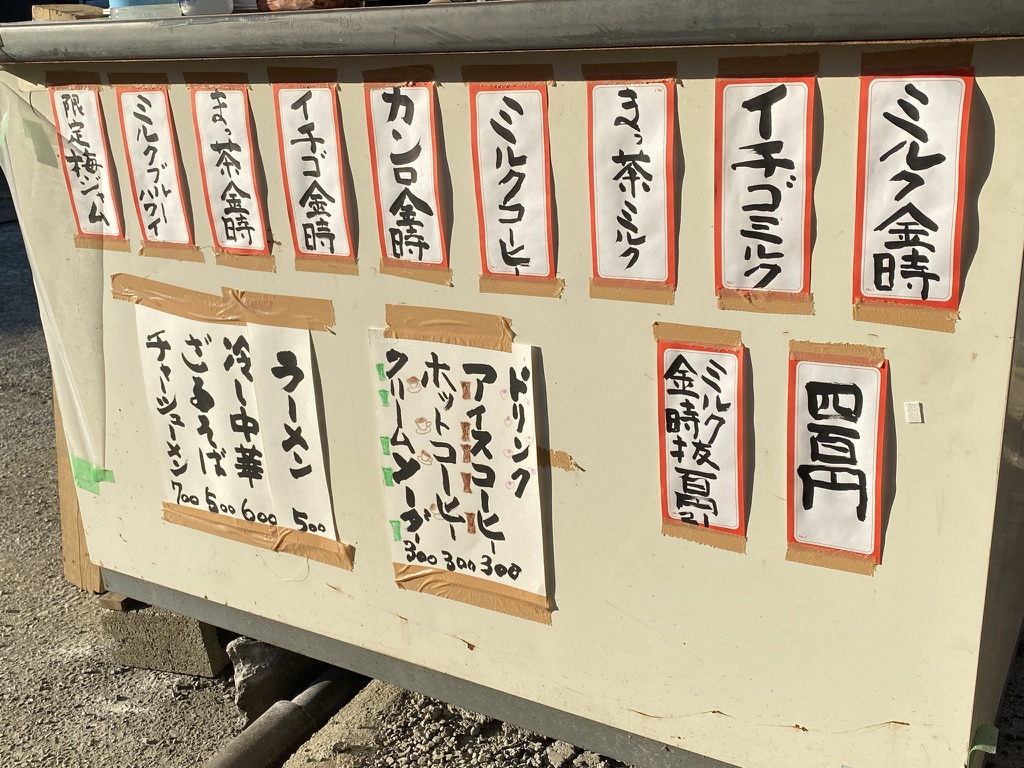 ミルク金時
イチゴミルク
まっ茶ミルク
ミルクコーヒー
カンロ金時
イチゴ金時
まっ茶金時
ミルクブルー
ハワイ
限定梅ジャム
四百円
ミルク
金時抜
ドリンク
アイスコーヒー 300
ホットコーヒー 300
クリームソーダー 300
ラーメン 500
冷し中華 600
ざるそば 500
チャーシューメン 700